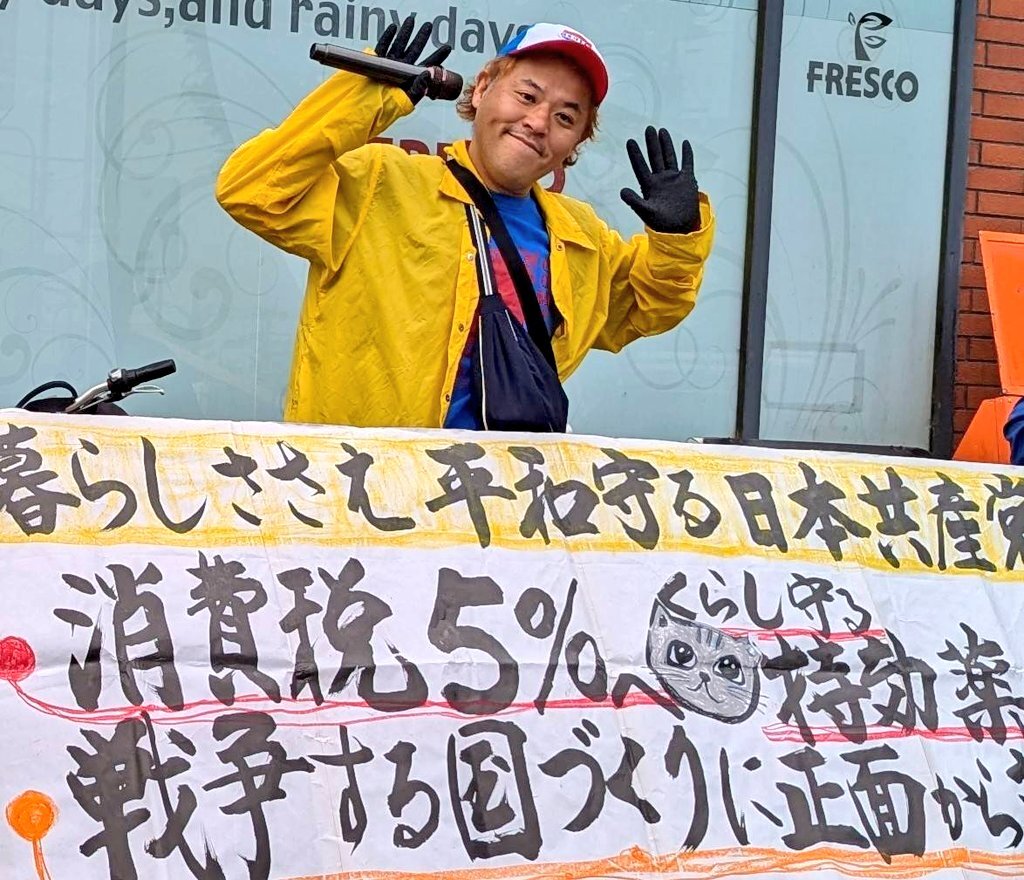 days,and rainy days
FRESCO
暮らしささえ 平和守る日本共産党
消費税5%へ
くらし守る
特効薬
戦争する国づくりに正面から